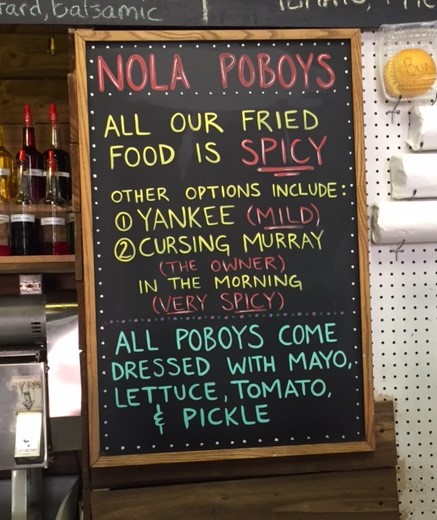 ard, balsamic
NOLA POBOYS
ALL OUR FRIED
FOOD IS SPICY
OTHER OPTIONS INCLUDE:
① YANKEE (MILD)
② CURSING MURRAY
(THE OWNER)
IN THE MORNING
(VERY SPICY)
ALL POBOYS COME
DRESSED WITH MAYO,
LETTUCE, TOMATO,
& PICKLE